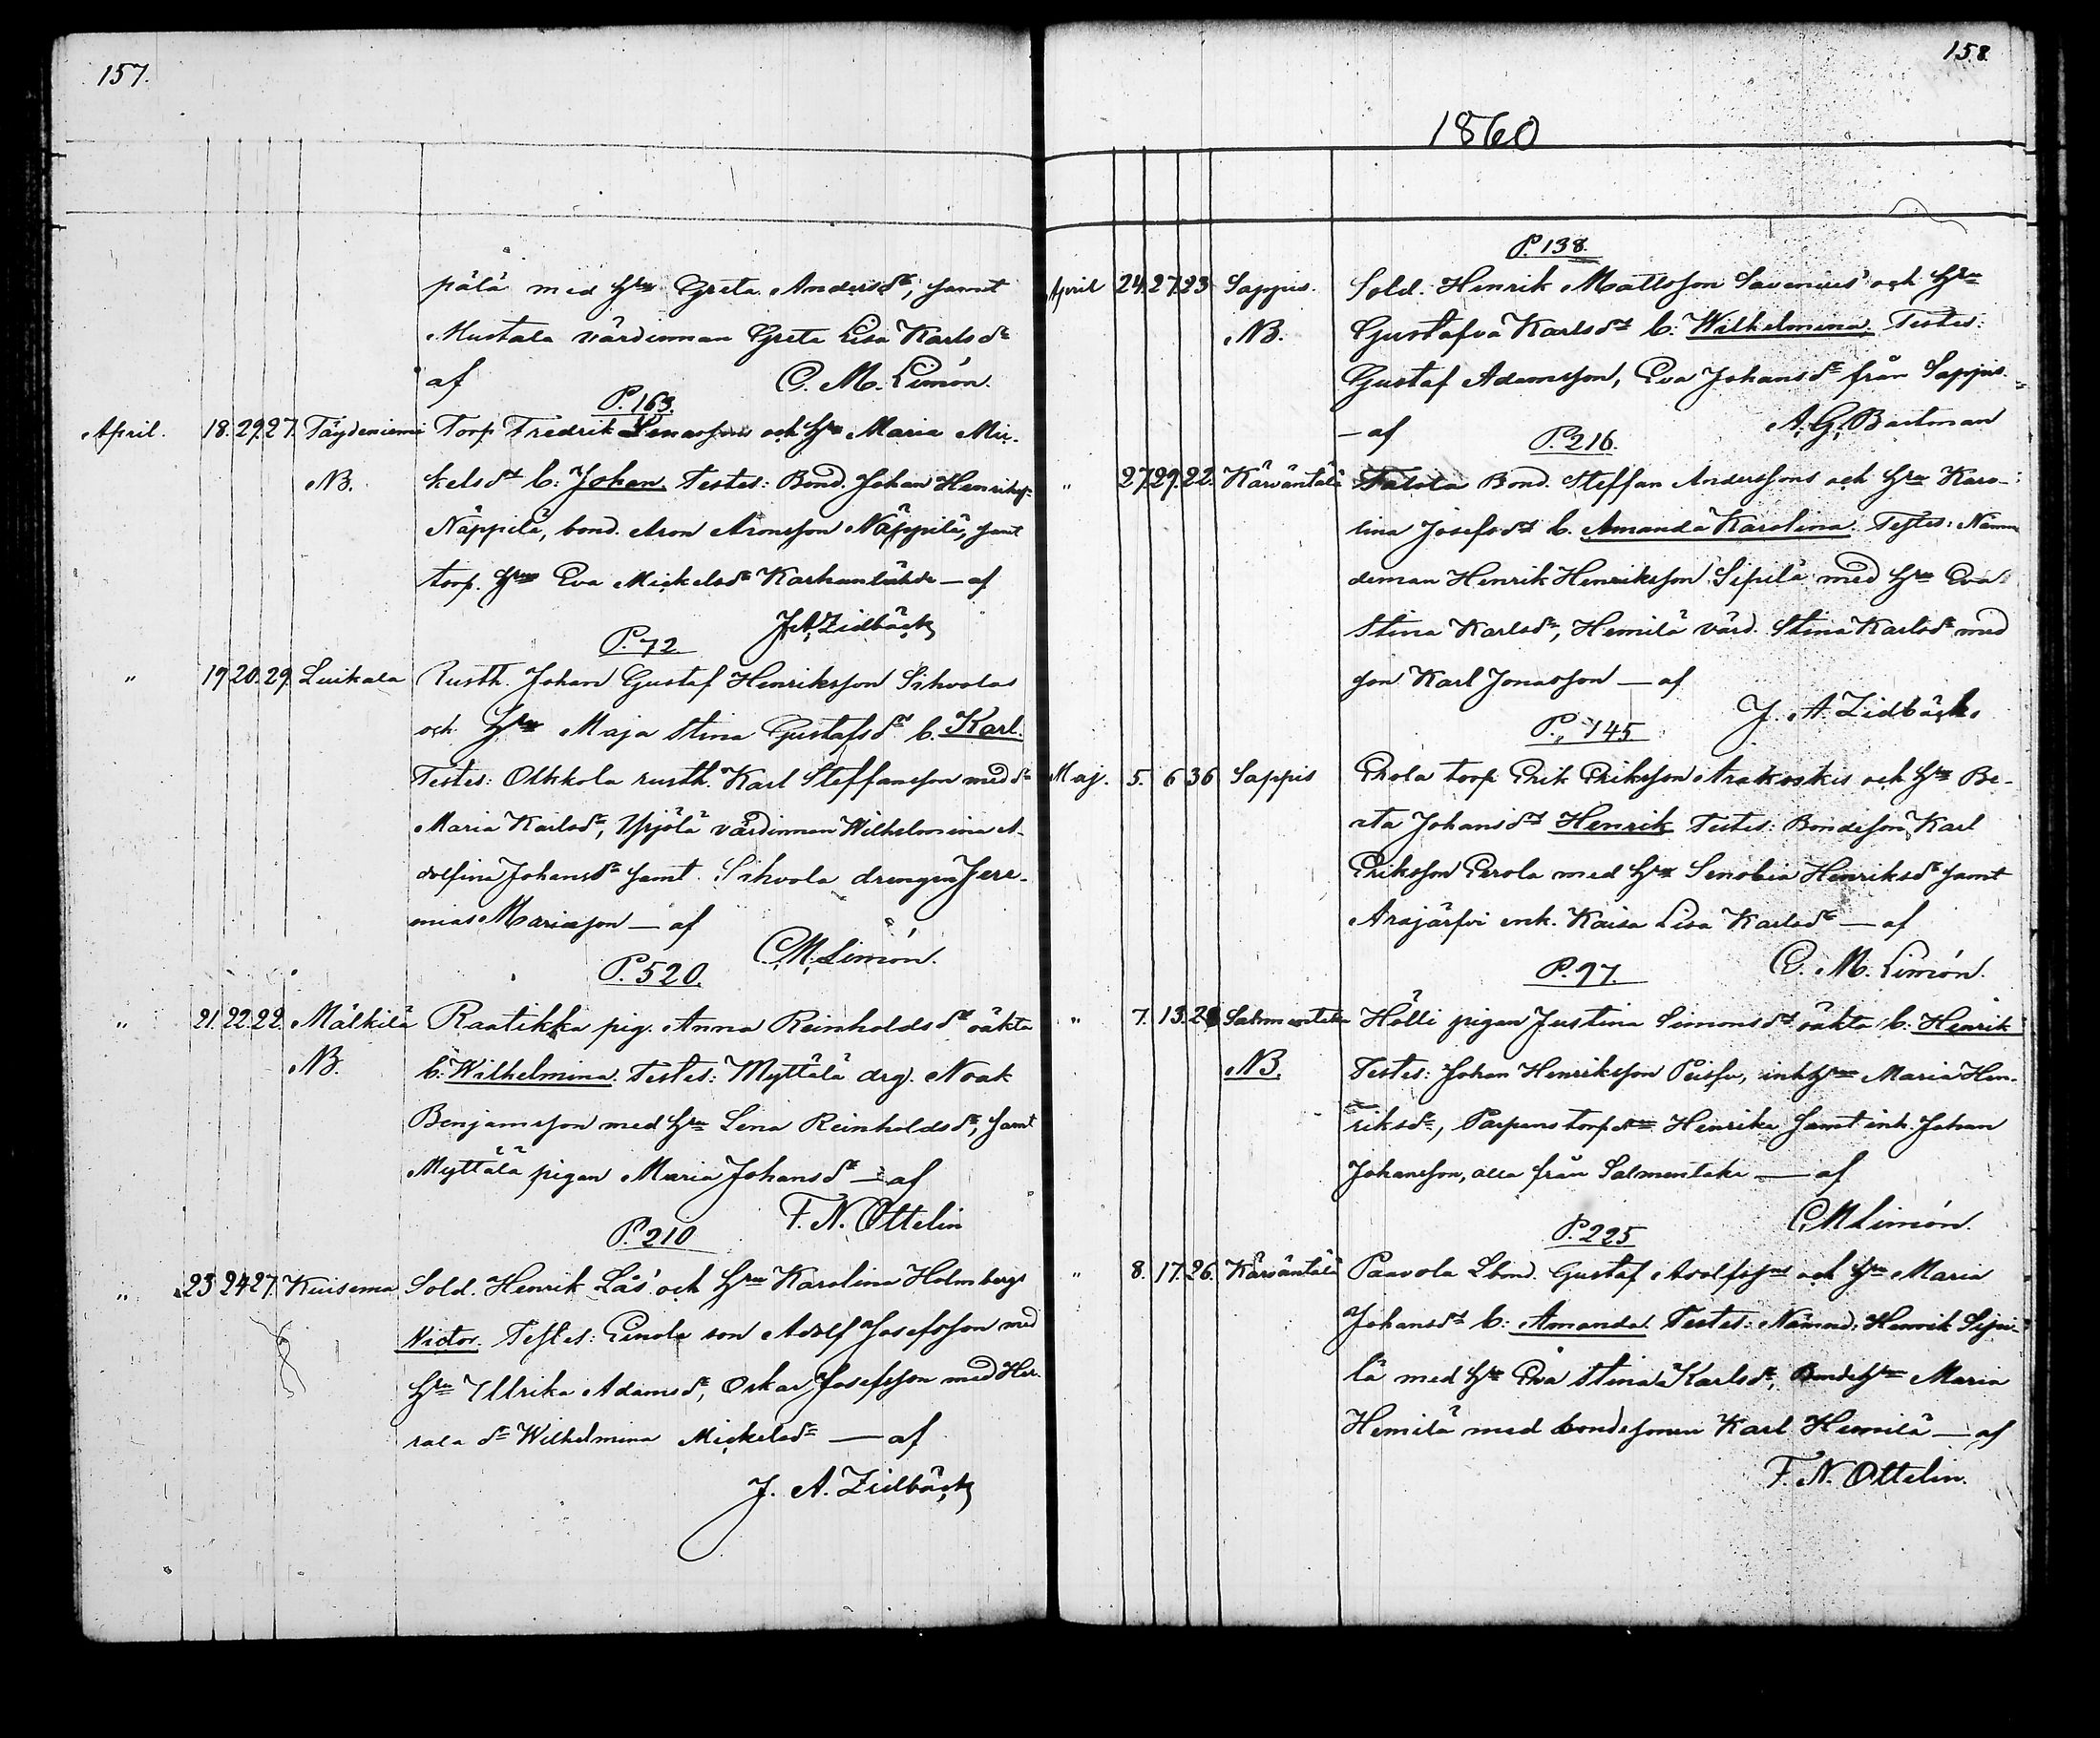 157.
pälä med hru Greta Andersdr, samt
Mustala värdinnan Greta Lisa Karlsdr
af C. M. Limón.
P. 163.
April. 18. 29. 27. Täydeniemi Torp Fredrik och hru Maria Mic-
NB. kelsdr b: Johan. Testes: Bond. Johan Henriksson
Näppilä, bond. Aron Aronsson Näppilä, samt
torp. hru Eva Mickelsdr Karhunlähde — af
J. A. Zidbäck
P. 72.
" 19. 20. 29. Luikala Rusth. Johan Gustaf Henriksson Sihvolas
och hru Maja Stina Gustafsdr b. Karl.
Testes: Olkkola rusth. Karl Steffansson med dr
Maria Karlsdr, Yrjölä värdinnan Wilhelmina A-
dolfina Johansdr samt Sihvola drengen Jere-
mias Mariasson — af
C. M. Limón.
P. 520.
" 21. 22. 22. Mälkilä Raatikka pig. Anna Reinholdsdr oäkta
NB. b: Wilhelmina. Testes: Myttälä drg. Noak
Benjamsson med hru Lena Reinholdsdr, samt
Myttälä pigan Maria Johansdr — af
F. N. Ottelin
P. 210
" 23 24 27. Kuisema Sold. Henrik Lås' och hru Karolina Holmbergs
Victor. Testes: Einola son Adolf Josefsson med
hru Ullrika Adamsdr, Oskar Josefsson med Her-
rala dr Wilhelmina Mickelsdr — af
J. A. Zidbäck
158.
1860
P. 138.
April 24. 27. 23 Sappis. Sold. Henrik Mattsson Savenius' och hru
NB. Gustafva Karlsdr b: Wilhelmina. Testes:
Gustaf Adamsson, Eva Johansdr från Sappis.
— af A. G. Bartman
P. 216.
" 27. 29. 22. Kärväntälä Talola Bond. Steffan Anderssons och hru Karo-
lina Josefsdr b. Amanda Karolina. Testes: Nämn
deman Henrik Henriksson Sipilä med hru Eva
Stina Karlsdr, Hemilä värd. Stina Karlsdr med
son Karl Jonasson — af
J. A. Zidbäck
P. 145.
Maj. 5. 6 36 Sappis Erola torp Erik Eriksson Arakoskis och hru Be-
ata Johansdr Henrik Testes: Bondeson Karl
Eriksson Erola med hru Senobia Henriksdr samt
Arajärfvi enk. Kaisa Lisa Karlsdr — af
C. M. Limón.
P. 97.
" 7. 13. Salmentaka Hölli pigan Justina Simonsdr oäkta b: Henrik
NB. Testes: Johan Henriksson Peissu, inh hru Maria Hen-
riksdr, Henrika samt inh. Johan
Johansson, alla från Salmentaka — af
C. M. Limón.
P. 225
" 8. 17. 26. Kärväntälä Paavola Lbond. Gustaf Adolfssons och hru Maria
Johansdr b: Amanda. Testes: Nämnd. Henrik Sipi-
lä med hru Eva Stina Karlsdr, Bonde hru Maria
Hemilä med bondesonen Karl Hemilä — af
F. N. Ottelin.